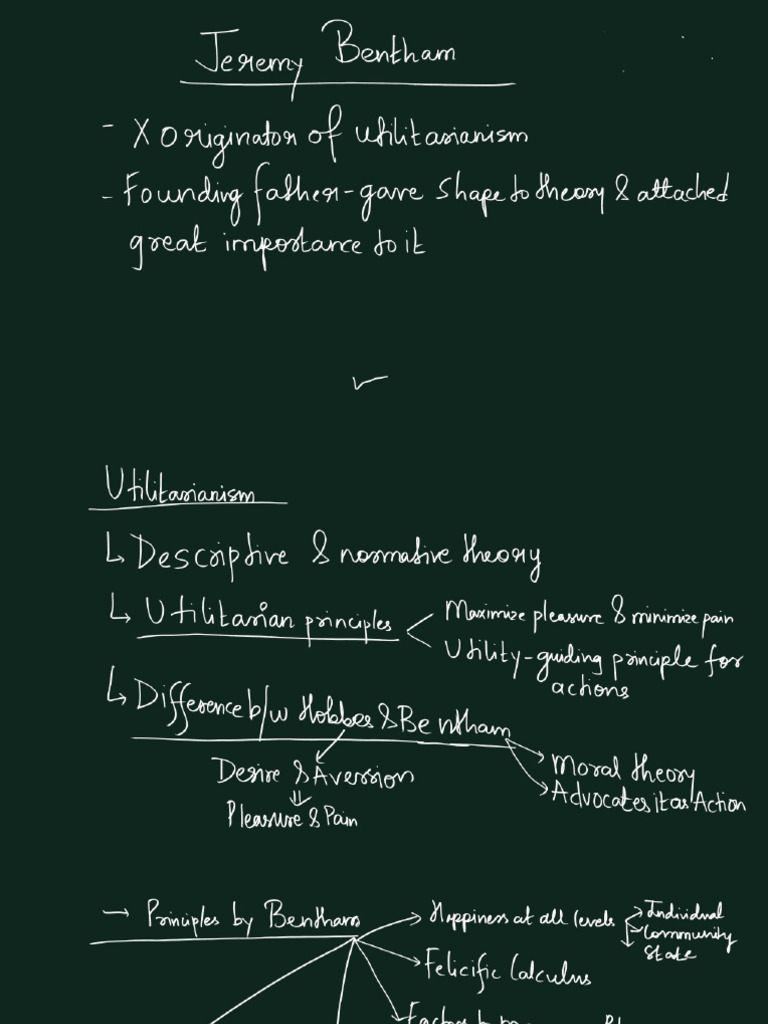 Jeremy Bentham
- X originator of utilitarianism
- Founding father - gave shape to theory & attached
great importance to it
Utilitarianism
↳ Descriptive & normative theory
↳ Utilitarian principles
Maximize pleasure & minimize pain
Utility - guiding principle for
actions
↳ Difference b/w Hobbes & Bentham
Desire & Aversion
⇓
Pleasure & Pain
Moral theory
Advocates it as Action
→ Principles by Bentham
Happiness at all levels
Individual
Community
State
Felicific Calculus
Factors